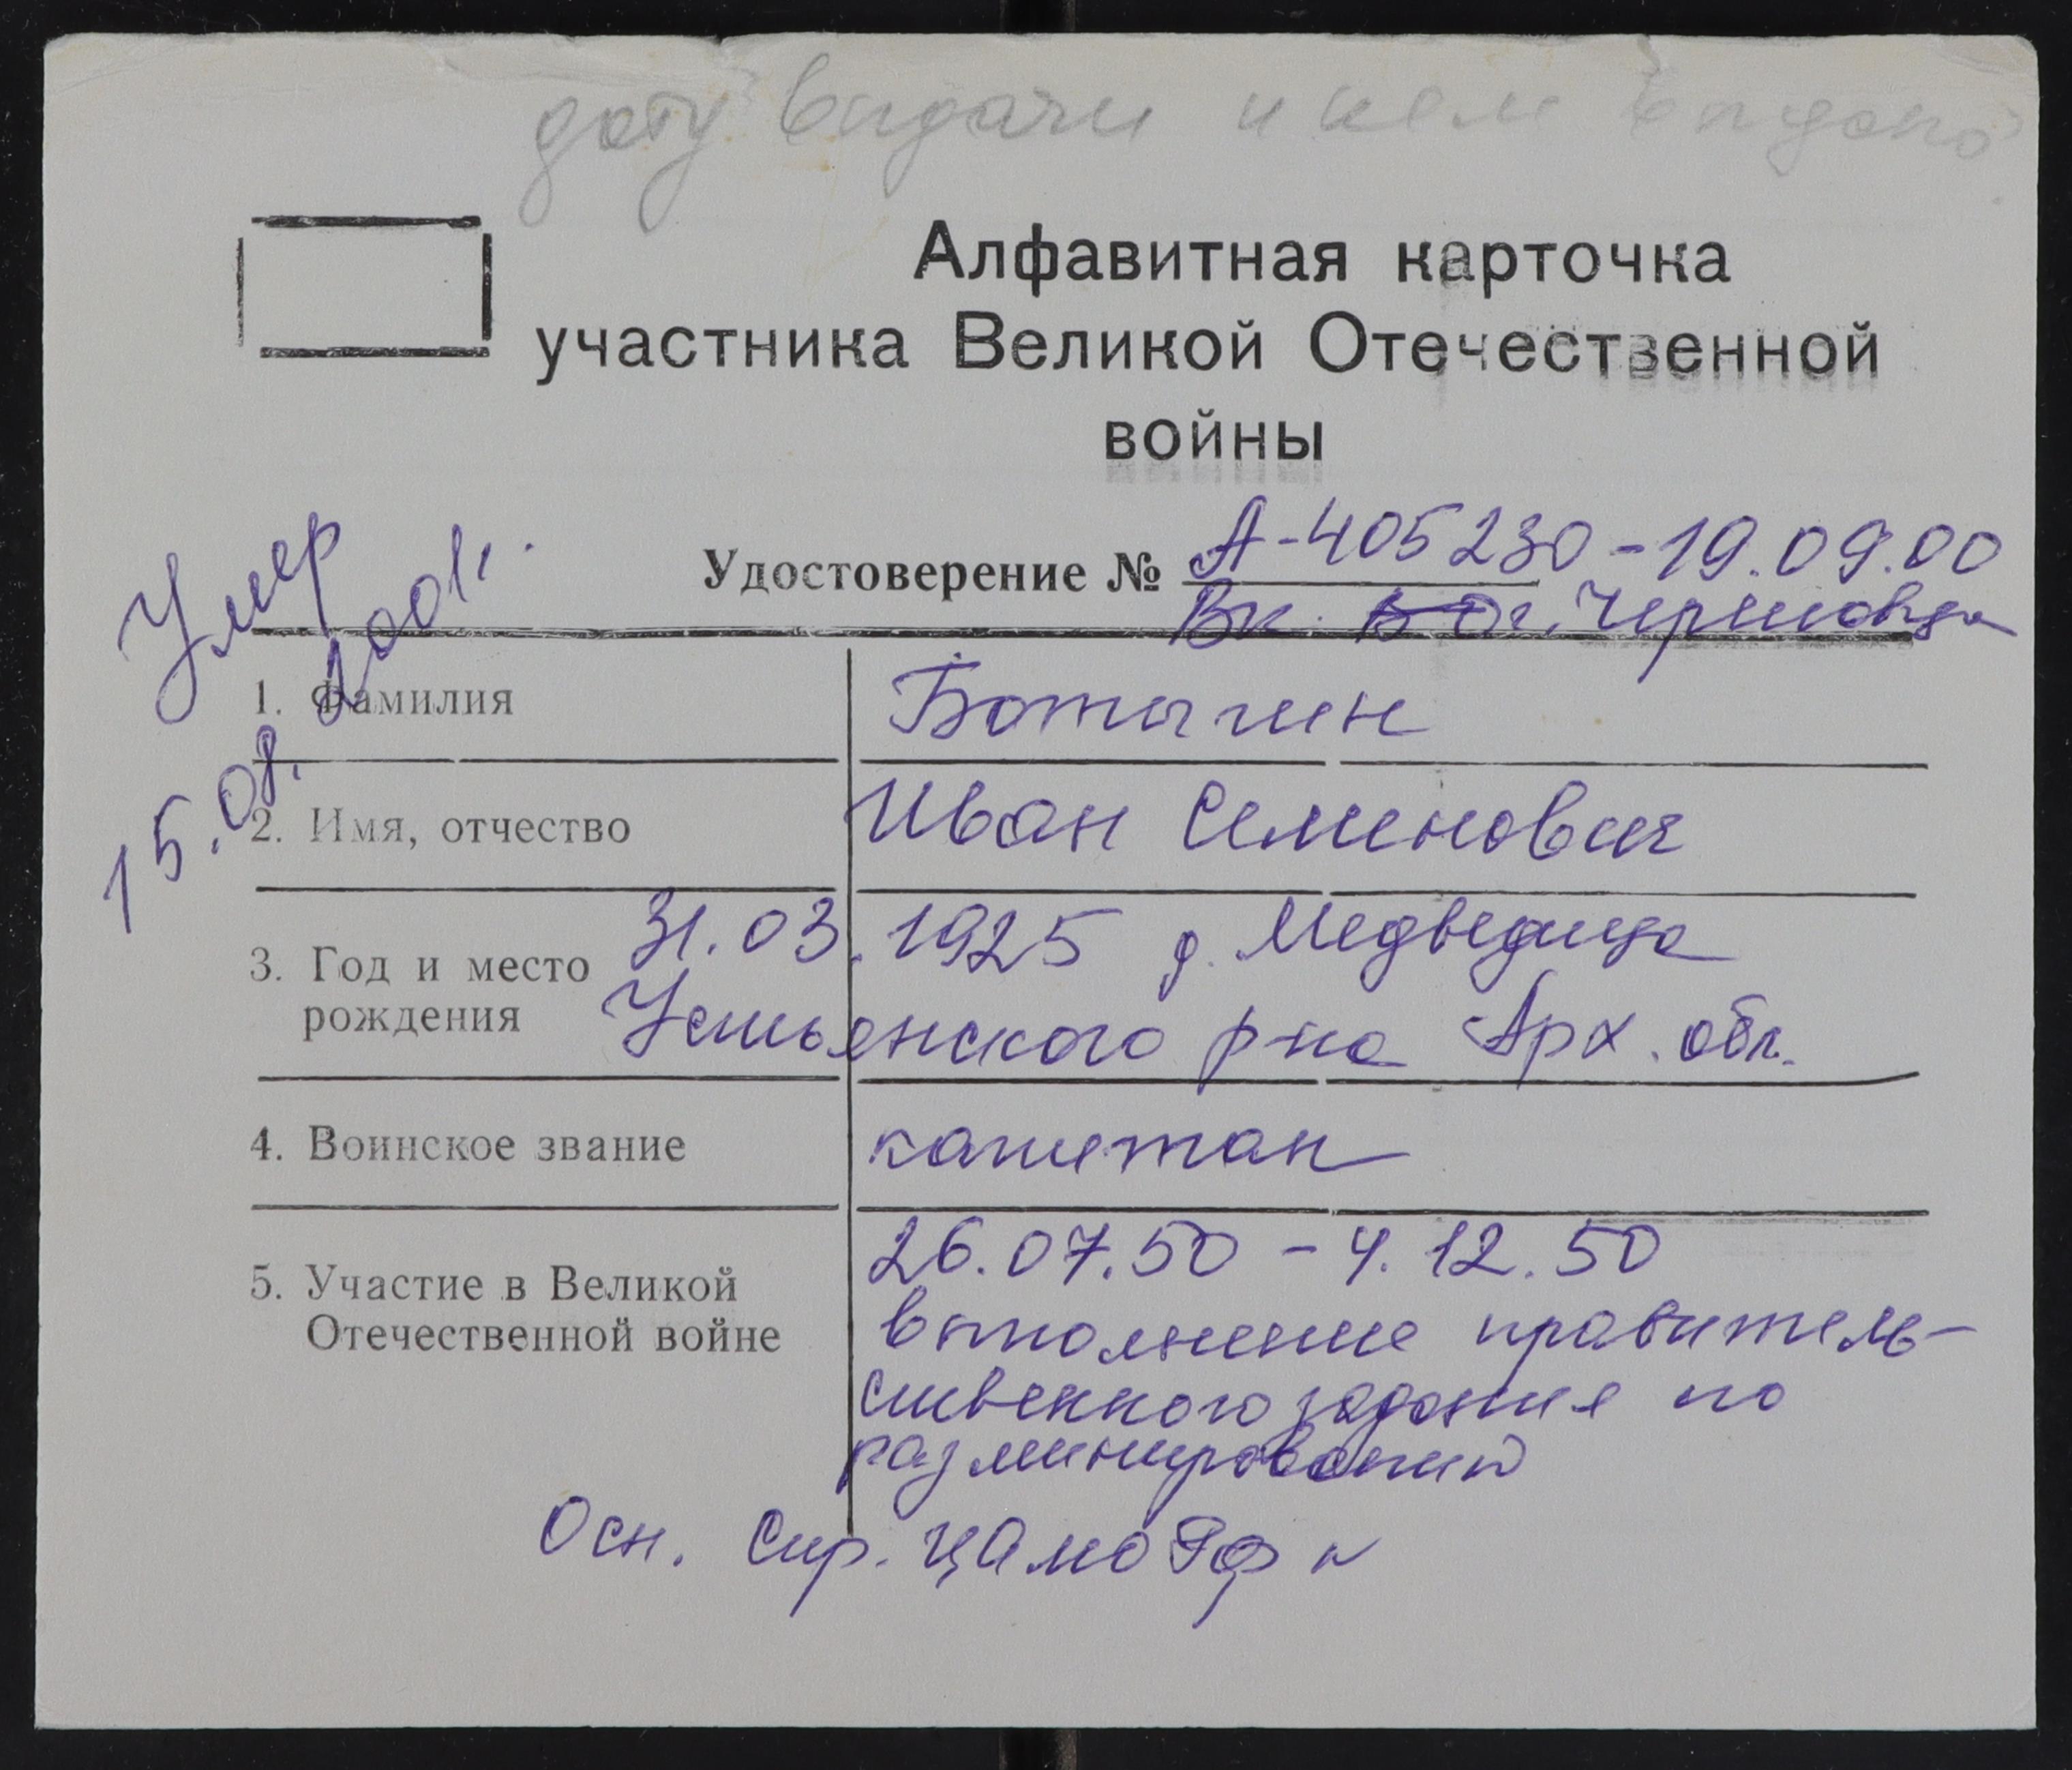 дату выдачи и кем выдано
Алфавитная карточка
участника Великой Отечественной
войны
Удостоверение № А-405230-19.09.00
Вк. г. Череповца
Умер
15.08.2001г.
1. Фамилия Ботыгин
2. Имя, отчество Иван Семенович
3. Год и место 31.03.1925 д. Медведица
рождения Устьянского р-на Арх. обл.
4. Воинское звание капитан
5. Участие в Великой 26.07.50 - 4.12.50
Отечественной войне выполнение правитель-
ственного задания по
разминированию
Осн. Спр. ЦАМО РФ